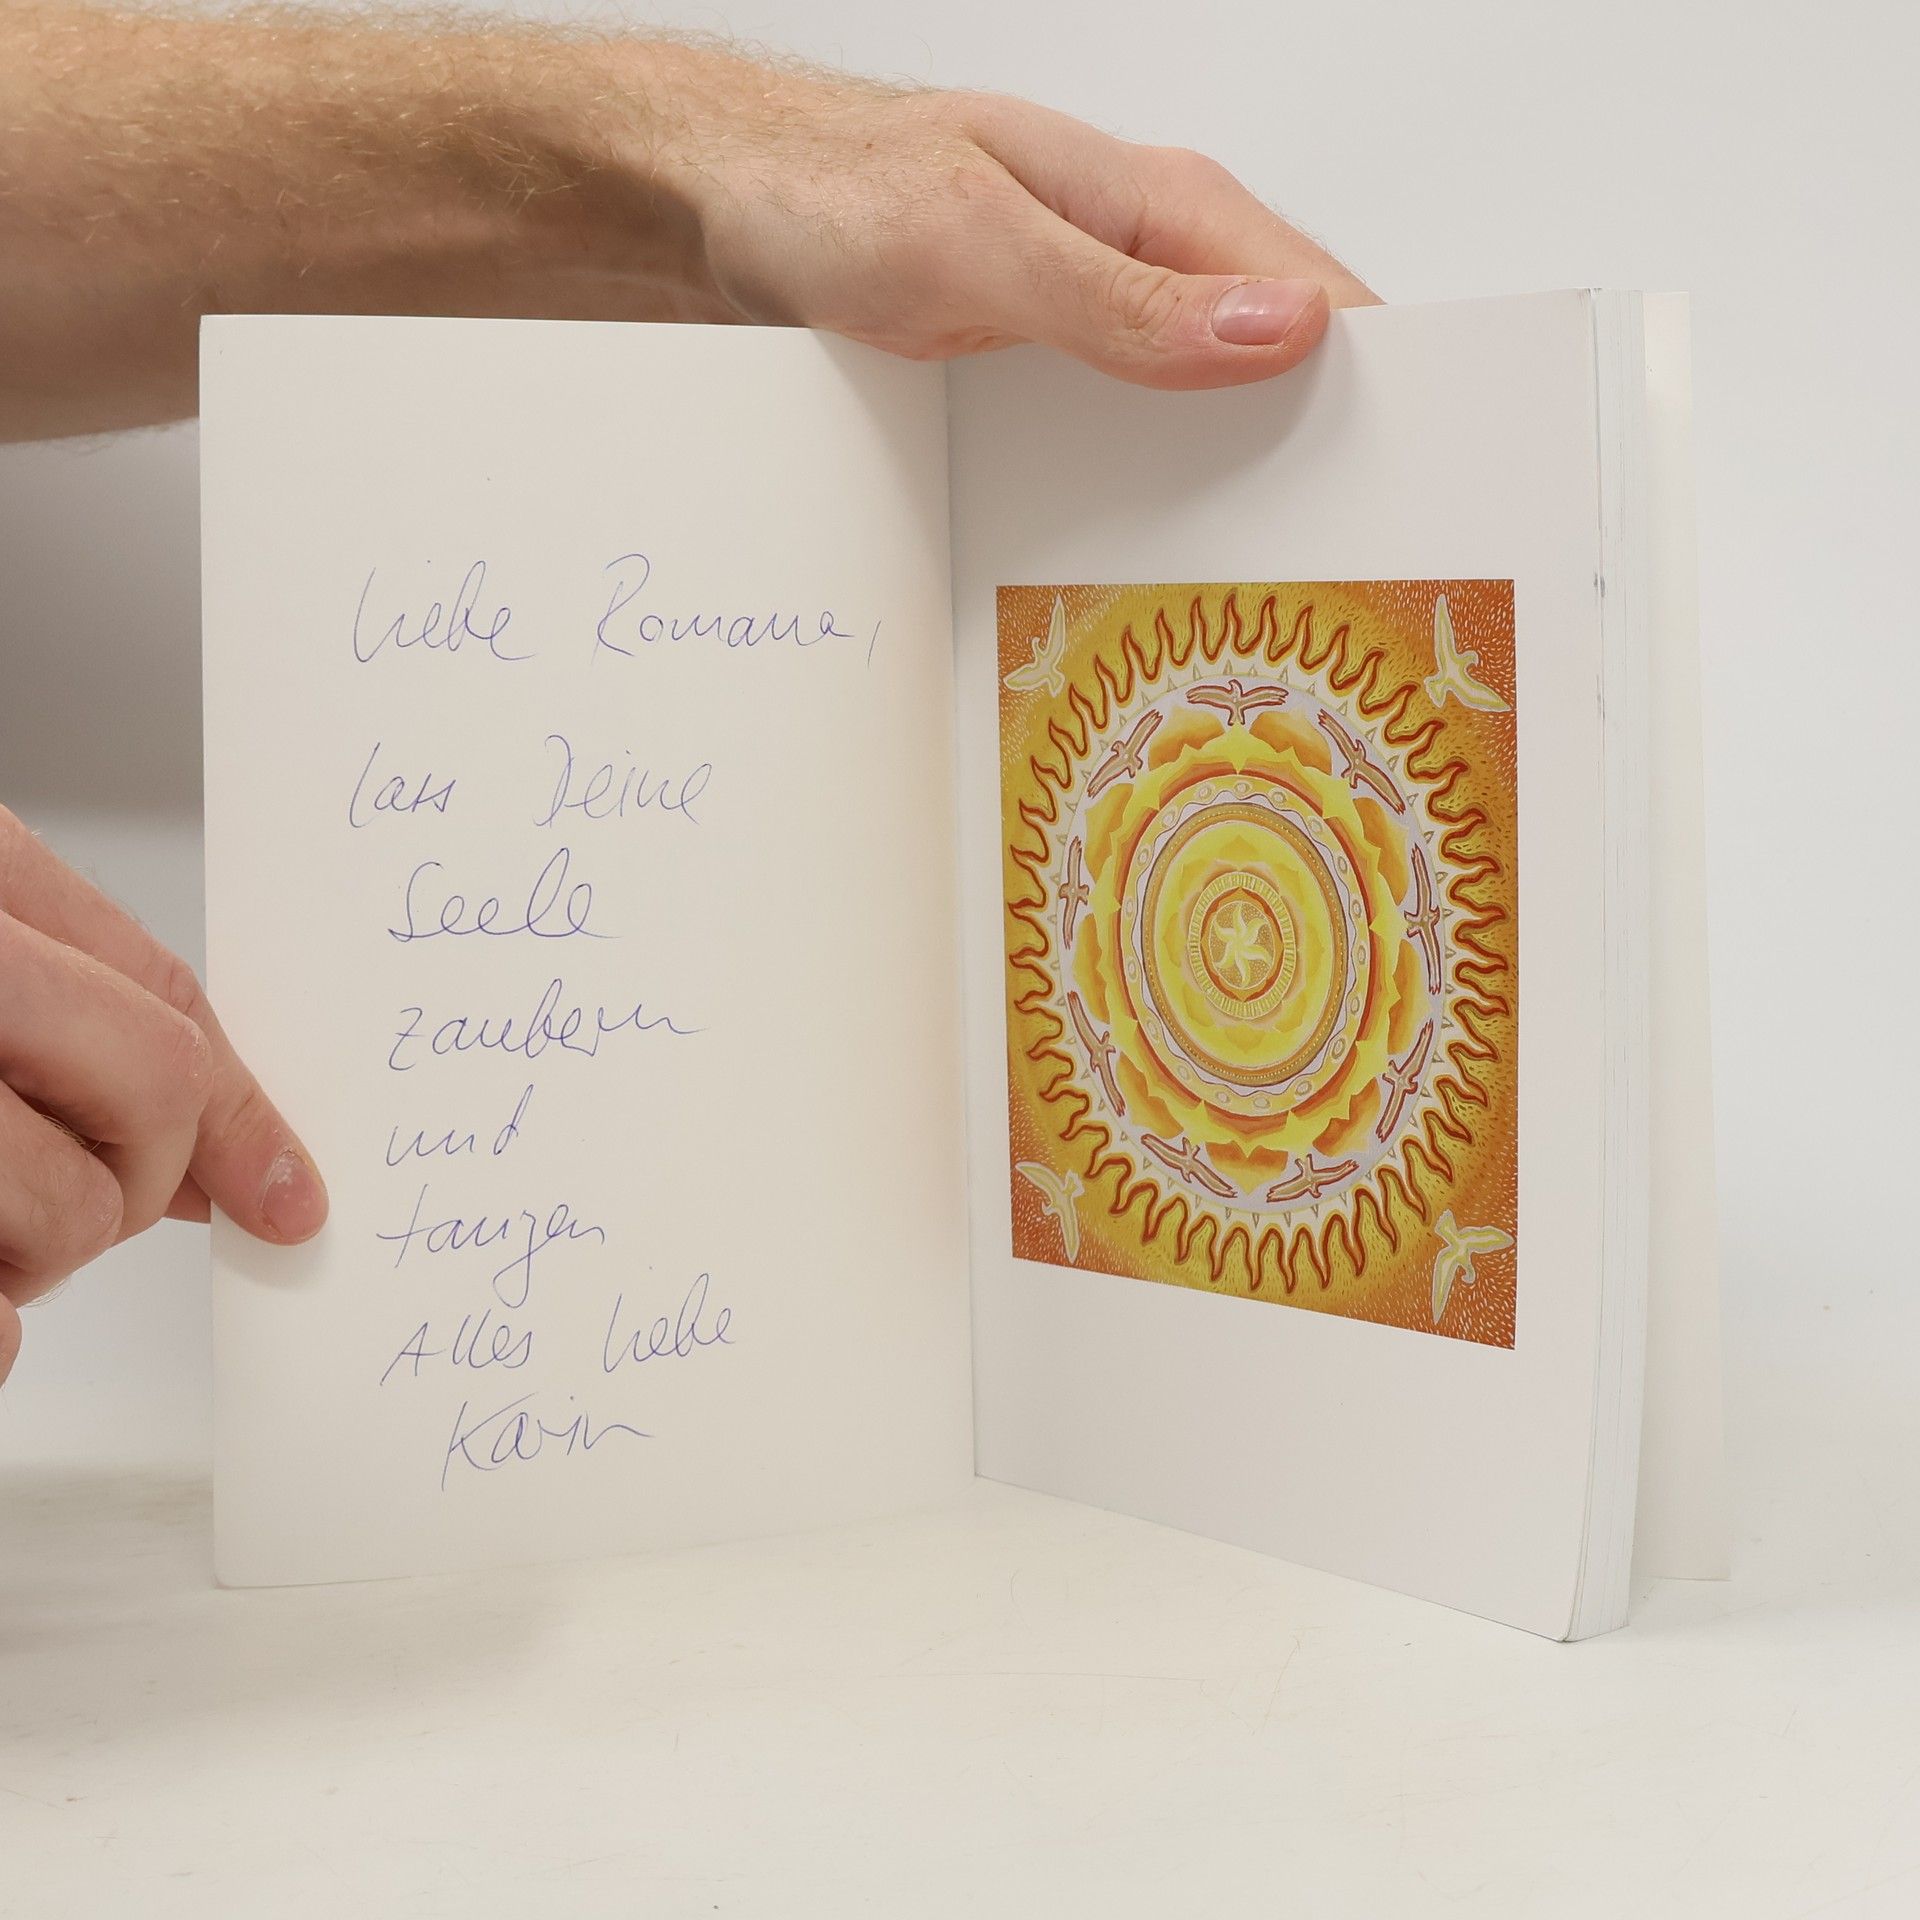 Liebe Romana,
lass Deine
Seele
zaubern
und
tanzen
Alles Liebe
Karin